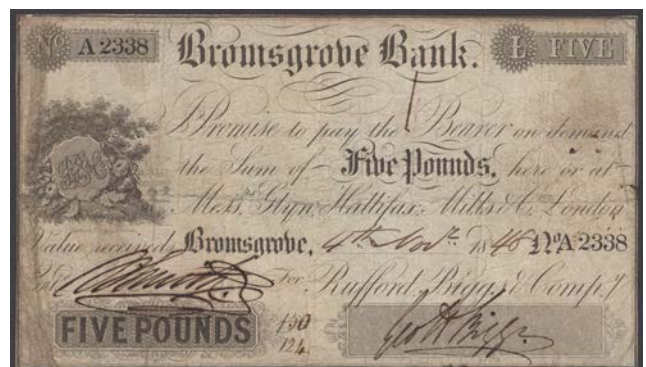 No A 2338 Bromsgrove Bank. £ FIVE
I Promise to pay the Bearer on demand
the Sum of Five Pounds, here or at
Messrs. Glyn, Hallifax, Mills & Co. London
Value received, Bromsgrove, 4th Novr. 1848 No A 2338
For Rufford, Biggs & Compy.
FIVE POUNDS 130 Geo H Biggs
124